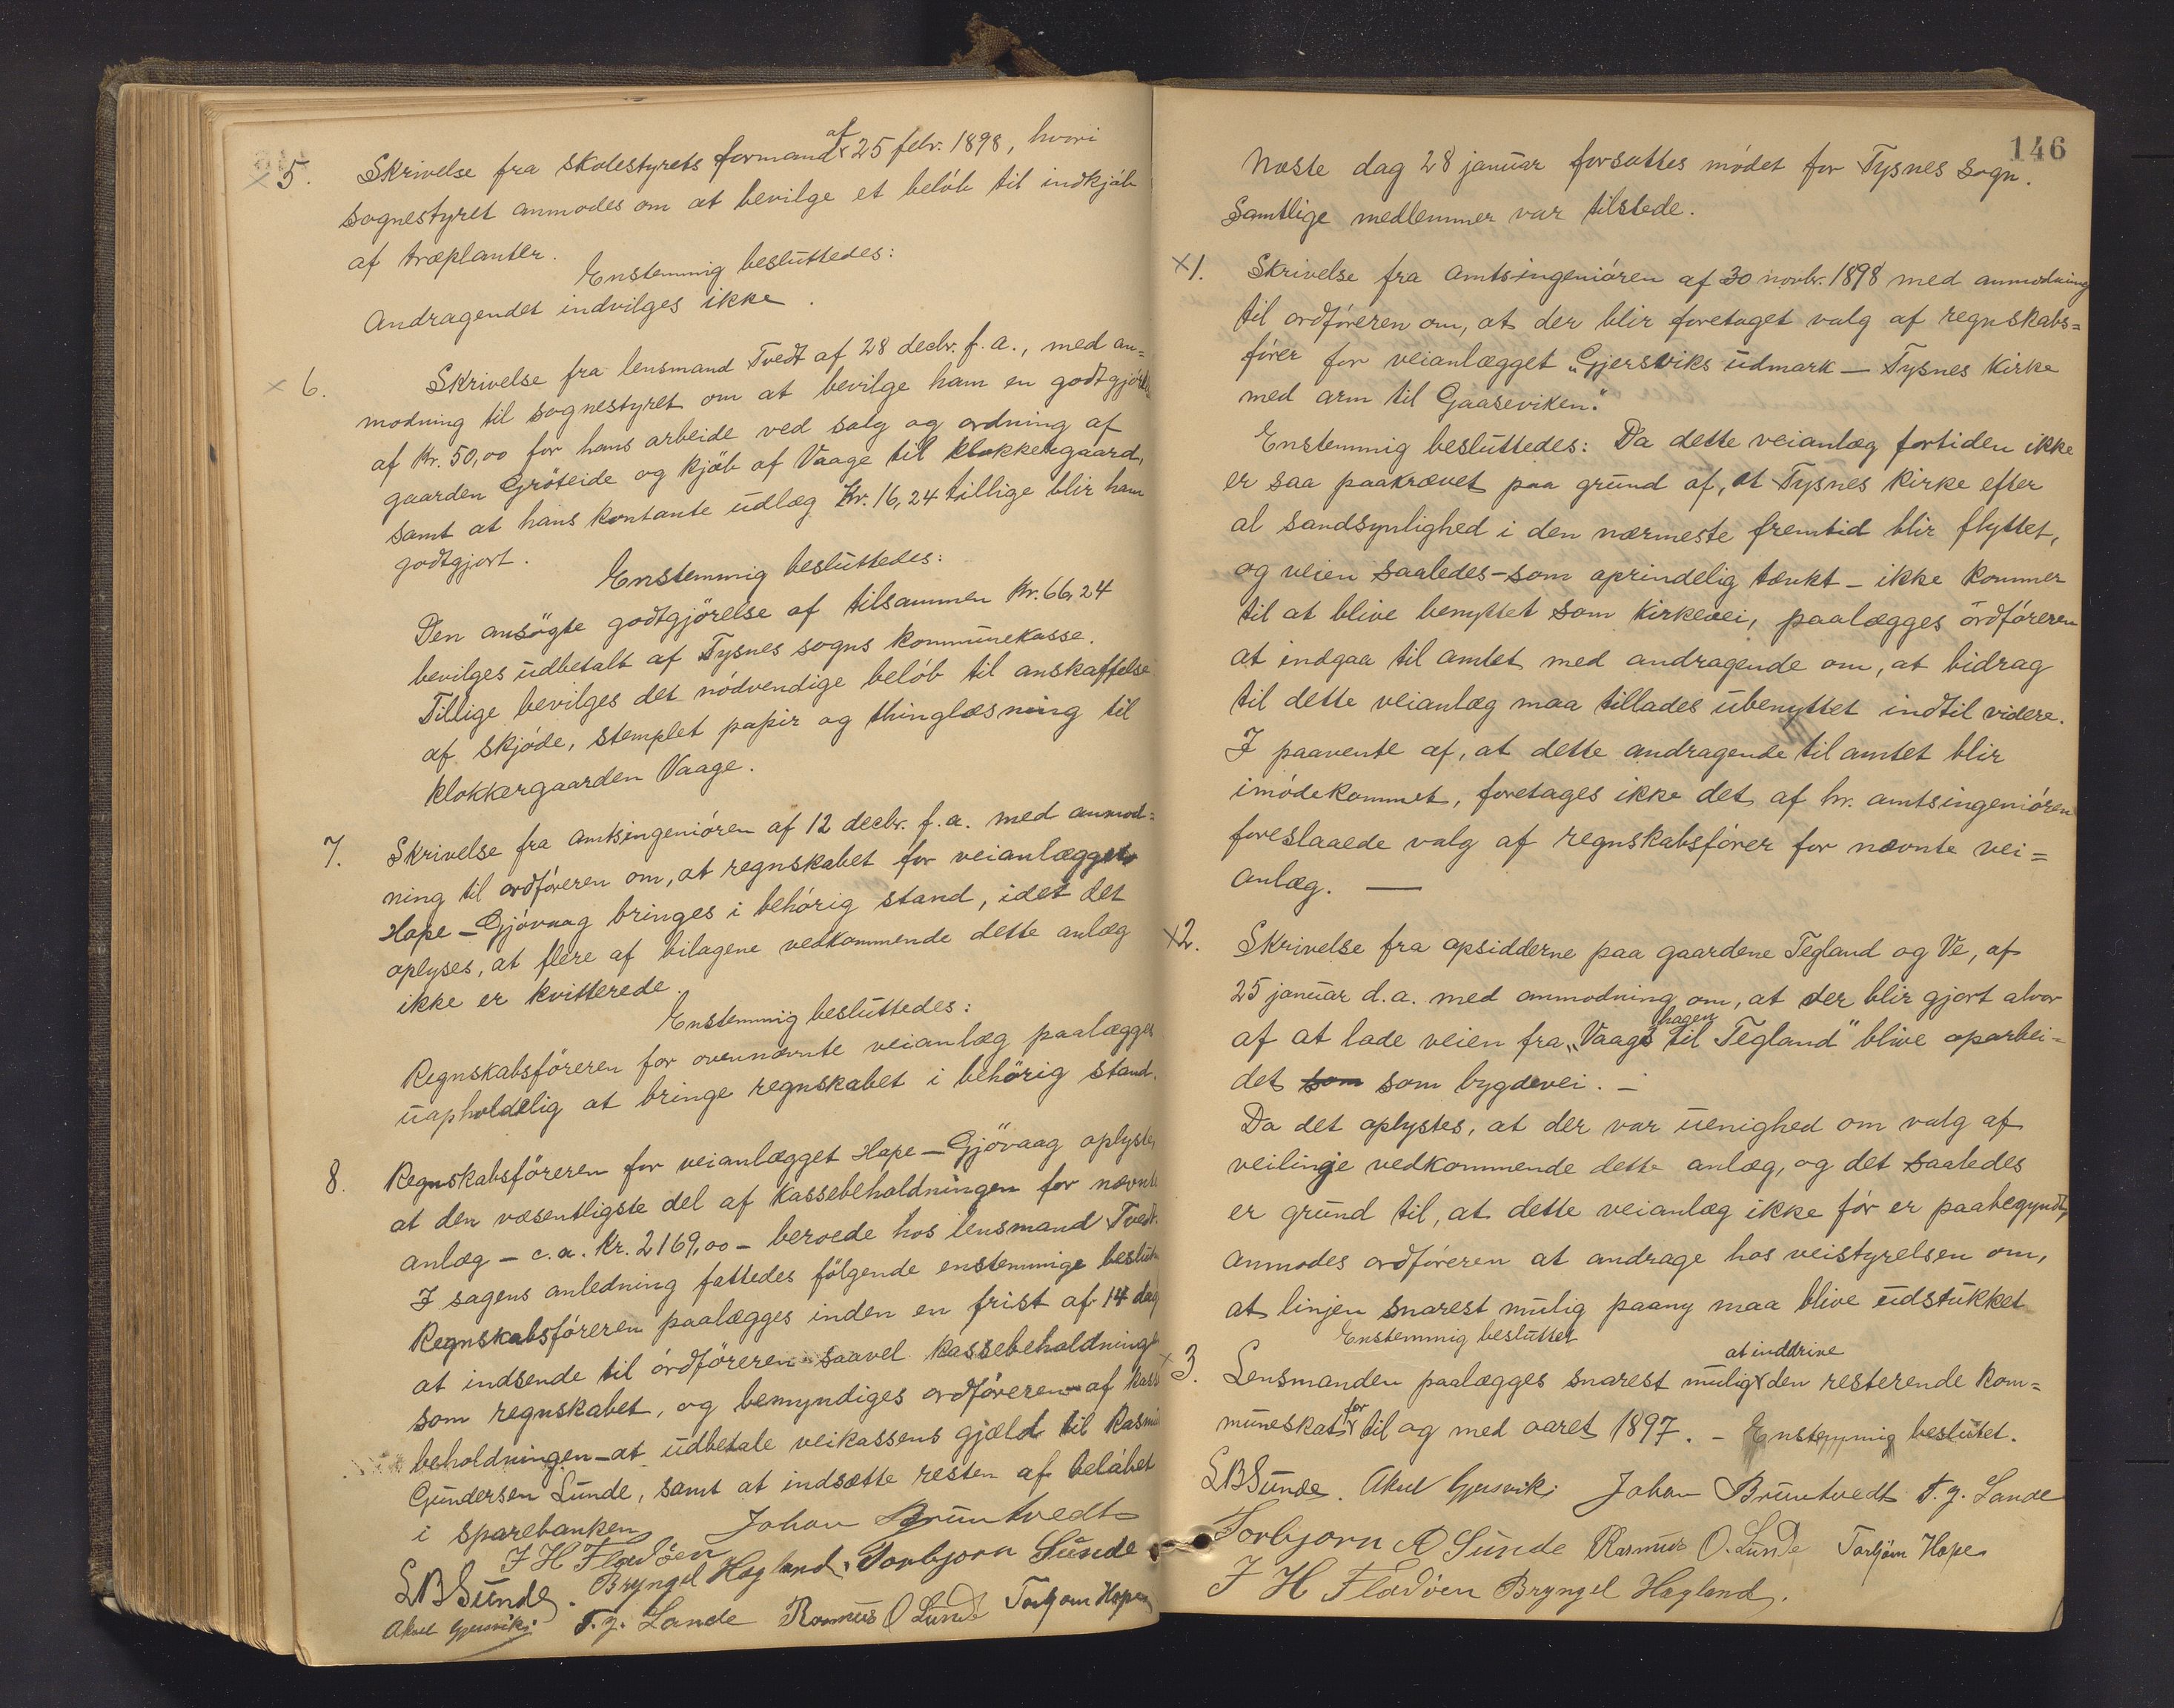 5. Skrivelse fra skolestyrets formand af 25 febr. 1898, hvori
sognestyret anmodes om at bevilge et beløb til indkjøb
af træplanter.
Enstemmig besluttedes:
Andragendet indvilges ikke.
6. Skrivelse fra lensmand Tvedt af 28 decbr. f.a., med an=
modning til sognestyret om at bevilge ham en godtgjörelse
af Kr. 50,00 for hans arbeide ved salg og ordning af
gaarden Gröteide og kjöb af Vaage til klokkergaard,
samt at hans kontante udlæg Kr. 16,24 tillige blir ham
godtgjort.
Enstemmig besluttedes:
Den ansögte godtgjörelse af tilsammen Kr. 66,24
bevilges udbetalt af Tysnes sogns kommunekasse.
Tillige bevilges det nödvendige beløb til anskaffelse
af skjøde, stemplet papir og thinglæsning til
klokkergaarden Vaage.
7. Skrivelse fra amtsingeniøren af 12 decbr. f.a. med anmod=
ning til ordføreren om, at regnskabet for veianlægget
Hope – Gjøvaag bringes i behørig stand, idet det
oplyses, at flere af bilagene vedkommende dette anlæg
ikke er kvitterede.
Enstemmig besluttedes:
Regnskabsföreren for ovennævnte veianlæg paalægges
uopholdelig at bringe regnskabet i behörig stand.
8. Regnskabsföreren for veianlægget Hope – Gjövaag oplyste,
at den væsentligste del af kassebeholdningen for nævnte
anlæg – c.a. Kr. 2169,00 – beroede hos lensmand Tvedt.
I sagens anledning fattedes fölgende enstemmige beslutn
Regnskabsføreren paalægges inden en frist af 14 dag
at indsende til ordföreren saavel kassebeholdning
som regnskabet, og bemyndiges ordføreren – af kasse
beholdningen – at udbetale veikassens gjæld til Rasmus
Gundersen Lunde, samt at indsætte resten af beløbet
i sparebanken
Johan Bruntvedt
J H Fladöen
L B Sunde. Bryngel Hagland. Torbjorn Sunde
Aksel Gjersvik. T. J. Lande Rasmus O Lunde Torbjørn Hope
146
Næste dag 28 januar forsattes mödet for Tysnes sogn.
Samtlige medlemmer var tilstede.
1. Skrivelse fra amtsingeniøren af 30 novbr. 1898 med anmodning
til ordføreren om, at der blir foretaget valg af regnskabs=
fører for veianlægget „Gjersviks udmark – Tysnes kirke
med arm til Gaaseviken."
Enstemmig besluttedes: Da dette veianlæg fortiden ikke
er saa paakrævet paa grund af, at Tysnes kirke efter
al sandsynlighed i den nærmeste fremtid blir flyttet,
og veien saaledes – som oprindelig tænkt – ikke kommer
til at blive benyttet som kirkevei, paalægges ordføreren
at indgaa til amtet med andragende om, at bidrag
til dette veianlæg maa tillades ubenyttet indtil videre.
I paavente af, at dette andragende til amtet blir
imødekommet, foretages ikke det af hr. amtsingeniøren
foreslaaede valg af regnskabsfører for nævnte vei=
anlæg. —
2. Skrivelse fra opsidderne paa gaardene Tegland og Ve, af
25 januar d.a. med anmodning om, at der blir gjort alvor
af at lade veien fra „Vaagshagen til Tegland" blive oparbei=
det som som bygdevei. –
Da det oplystes, at der var uenighed om valg af
veilinje vedkommende dette anlæg, og det saaledes
er grund til, at dette veianlæg ikke før er paabegyndt,
anmodes ordføreren at andrage hos veistyrelsen om,
at linjen snarest mulig paany maa blive udstukket
Enstemmig besluttet
3. Lensmanden paalægges snarest mulig at inddrive den resterende kom=
muneskat for til og med aaret 1897. – Enstemmig beslutet.
L B Sunde. Aksel Gjersvik. Johan Bruntvedt T. J. Lande
Torbjorn A Sunde Rasmus O. Lunde Torbjørn Hope
J H Fladöen Bryngel Hagland.